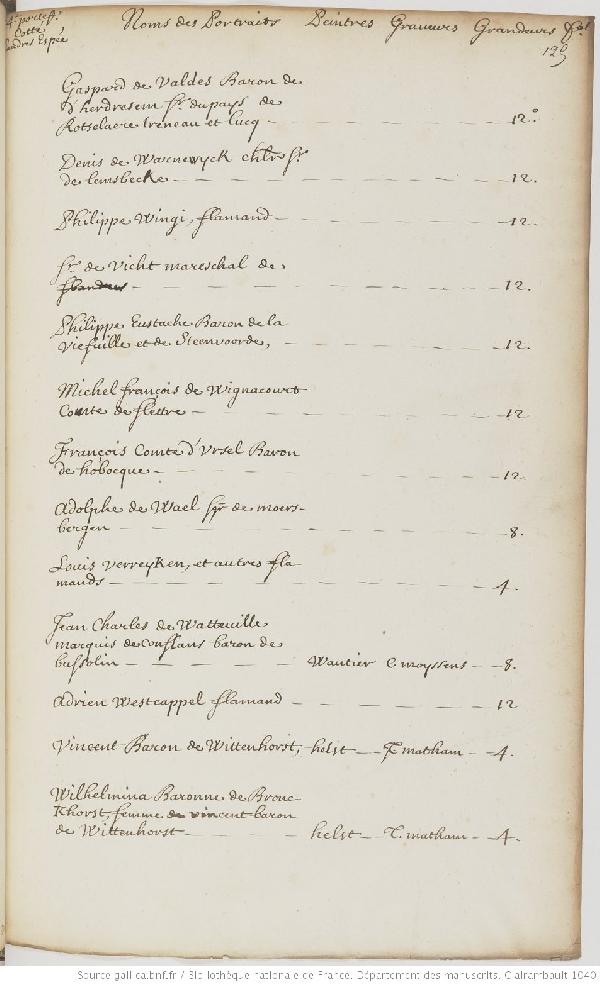 4e porteff.
Cotte
Noms des Portraits Peintres Graveurs Grandeurs fol.
129
Gaspard de Valdes Baron de
d'herdresem Sr. du pays de
Rotselaere treneau et Lucq - 12.o
Denis de Warnewyck chlr Sr.
de Lemsbecke - 12.
Philippe Wingi, flamand - 12.
Sr. de Vicht mareschal de
flandres - 12.
Philippe Eustache Baron de la
Viefuille et de Steenvoorde, - 12.
Michel françois de Wignacourt
Comte de flettre - 12
François Comte d'Ursel Baron
de hobocque - 12.
Adolphe de Wael Sgr de moers-
bergen - 8.
Louis Verreyken, et autres fla-
mands - 4.
Jean Charles de Watteuille
marquis de Conflans baron de
bussolin - Wautier C. moyssens - 8.
Adrien Westcappel flamand - 12
Vincent Baron de Wittenhorst, helst - T. matham - 4.
Wilhelmina Baronne de Brouc-
Khorst, femme de vincent baron
de Wittenhorst - helst - T. matham - 4.
Source gallica.bnf.fr / Bibliothèque nationale de France. Département des manuscrits. Clairambault 1040